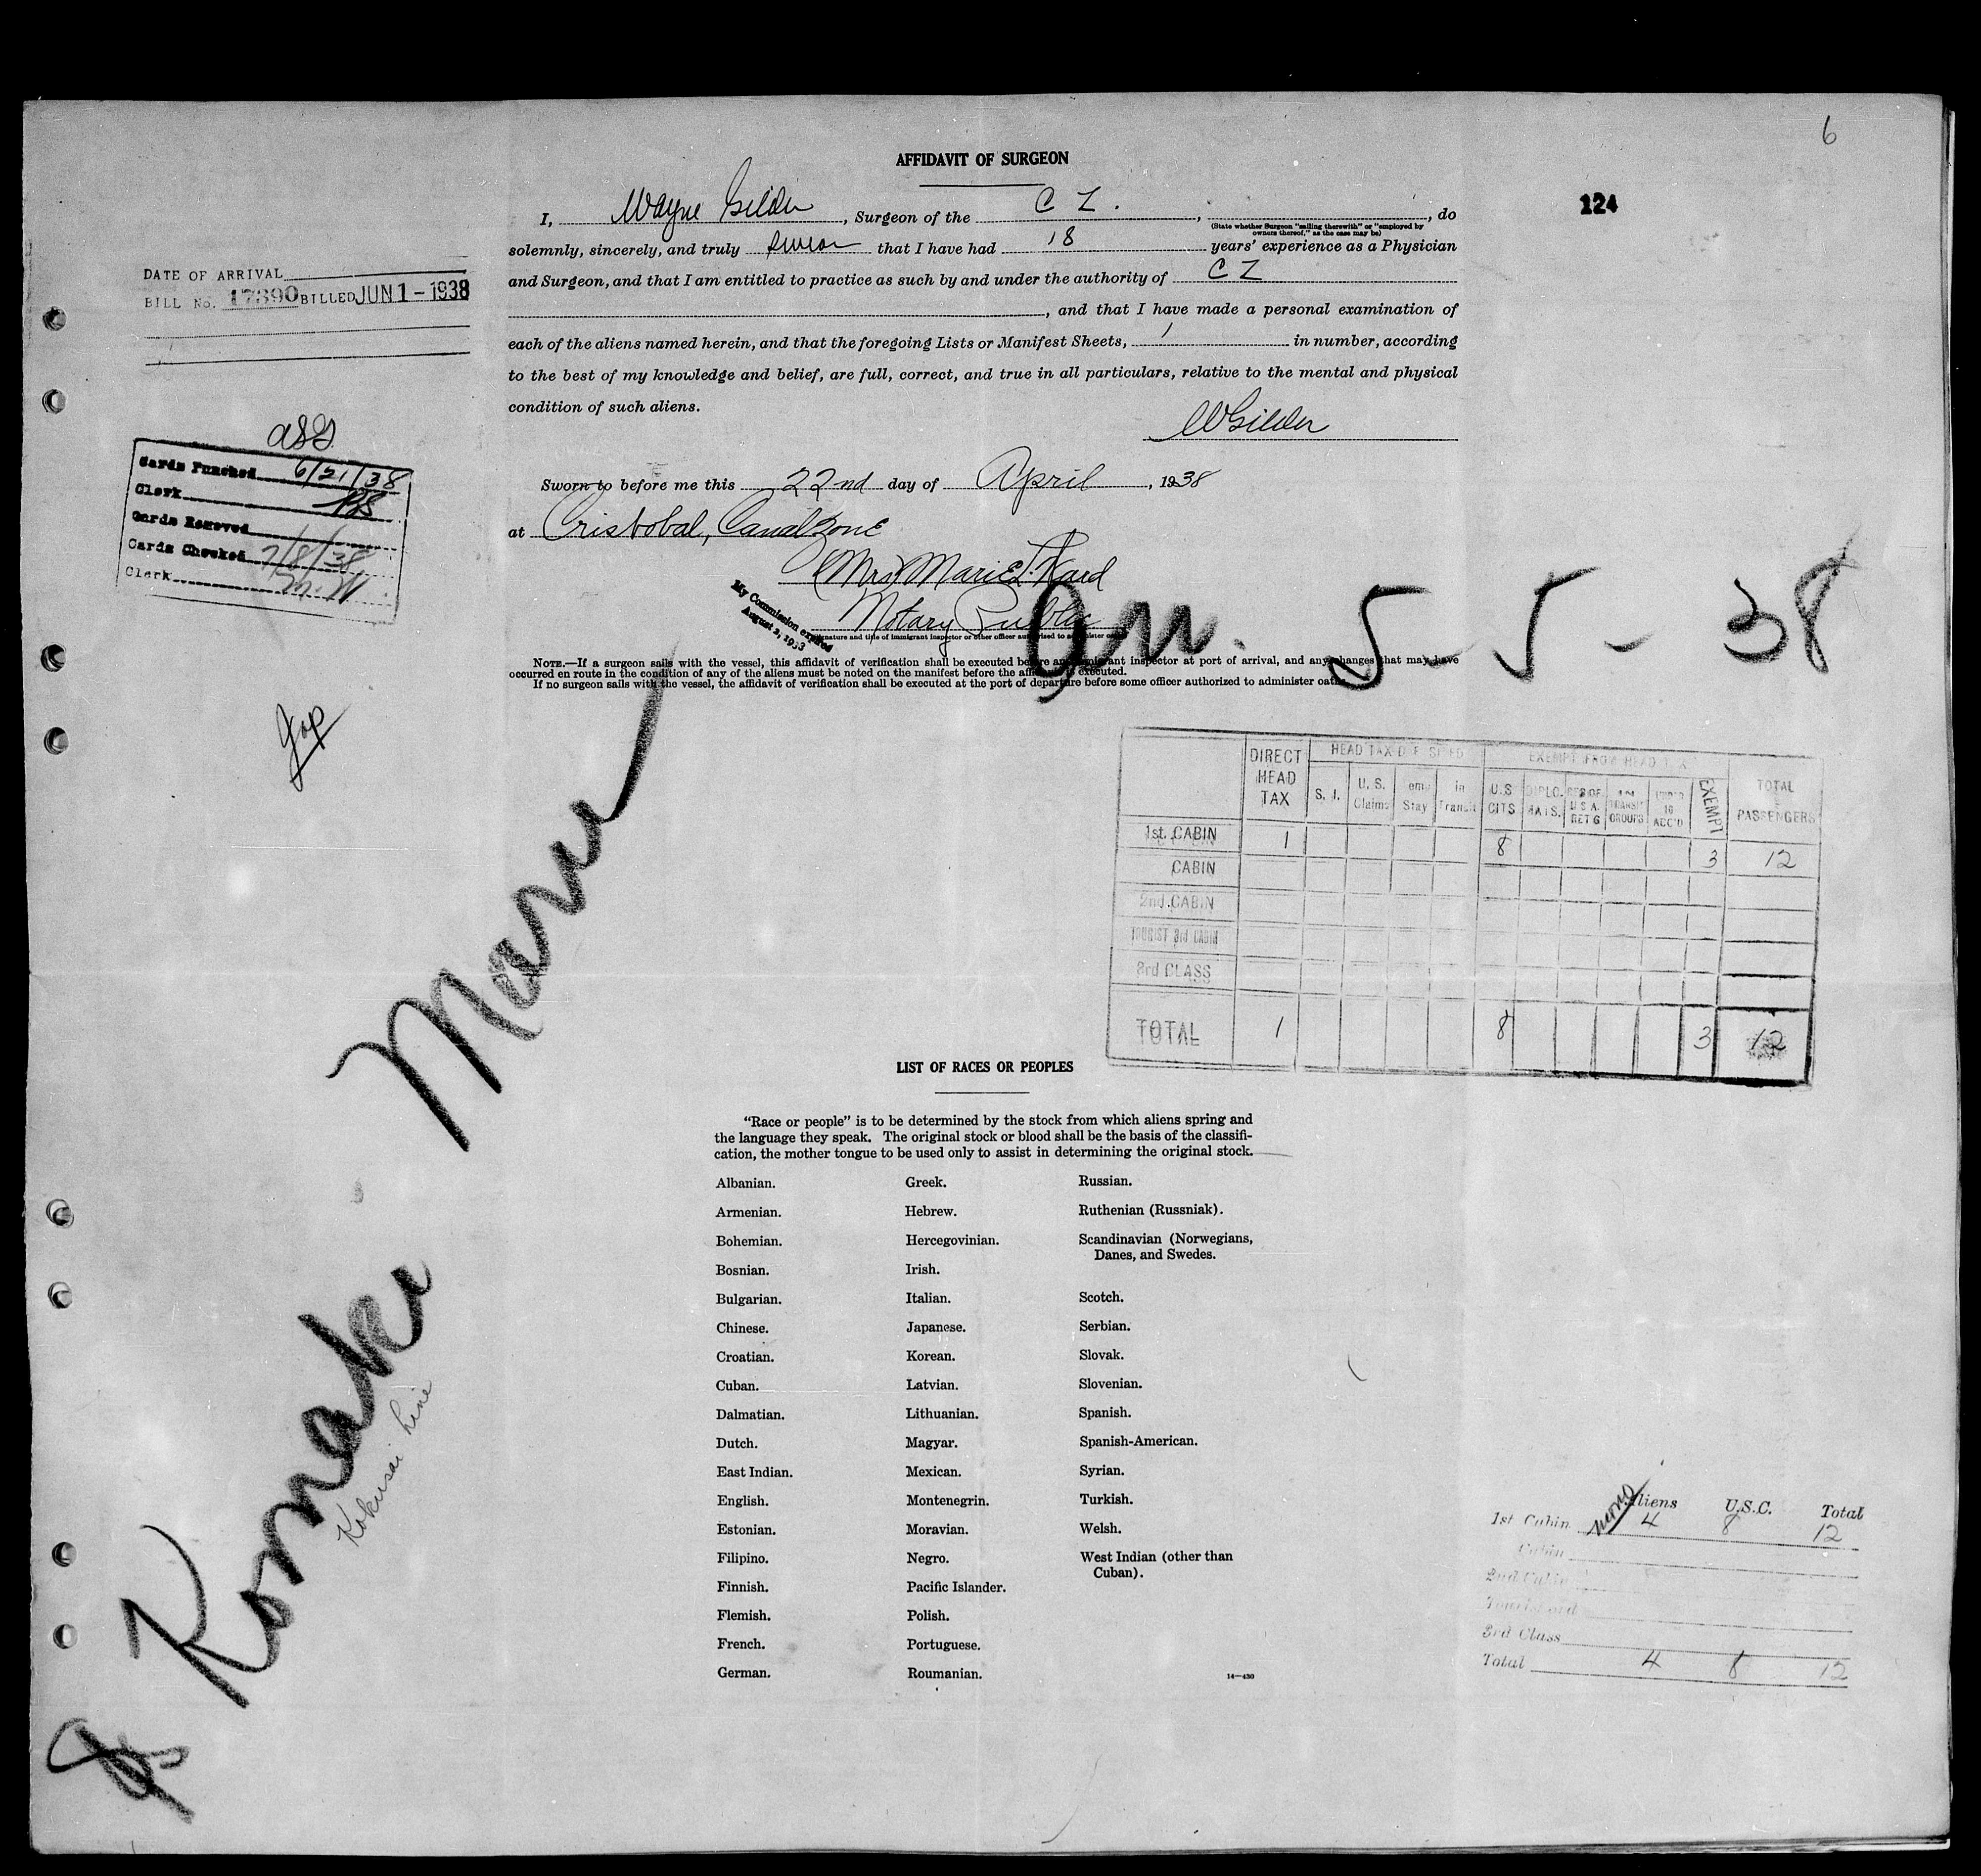 6
AFFIDAVIT OF SURGEON
124
I, Wayne Gilder, Surgeon of the C Z., , do
(State whether Surgeon "sailing therewith" or "employed by
owners thereof," as the case may be)
solemnly, sincerely, and truly swear that I have had 18 years' experience as a Physician
and Surgeon, and that I am entitled to practice as such by and under the authority of C Z
, and that I have made a personal examination of
each of the aliens named herein, and that the foregoing Lists or Manifest Sheets, 1 in number, according
to the best of my knowledge and belief, are full, correct, and true in all particulars, relative to the mental and physical
condition of such aliens.
WGilder
Sworn to before me this 22nd day of April, 1938
at Cristobal, Canal Zone
(Mrs) Marie L. Kard
Notary Public
My Commission expires
August 2, 1953
Signature and title of immigrant inspector or other officer authorized to administer oaths
NOTE.—If a surgeon sails with the vessel, this affidavit of verification shall be executed before an immigrant inspector at port of arrival, and any changes that may have
occurred en route in the condition of any of the aliens must be noted on the manifest before the affidavit is executed.
If no surgeon sails with the vessel, the affidavit of verification shall be executed at the port of departure before some officer authorized to administer oaths.
DATE OF ARRIVAL
BILL NO. 17390 BILLED JUN 1 - 1938
Cards Punched 6/21/38
Clerk
Cards Removed
Cards Checked 7/8/38
Clerk M.W.
Jap
arr. 5-5-38
Komaki Maru
Kokusai Line
DIRECT HEAD TAX
HEAD TAX DEPOSITED
S. I.
U. S. Claims
Temp Stay
in Transit
EXEMPT FROM HEAD TAX
U.S CITS
DIPLO. MATS.
RES OF. U.S.A. RET'G
TRANSIT GROUPS
UNDER 16 ACC'D
EXEMPT
TOTAL PASSENGERS
1st. CABIN 1 8 3 12
CABIN
2nd. CABIN
TOURIST 3rd CABIN
3rd CLASS
TOTAL 1 8 3 12
LIST OF RACES OR PEOPLES
"Race or people" is to be determined by the stock from which aliens spring and
the language they speak. The original stock or blood shall be the basis of the classifi-
cation, the mother tongue to be used only to assist in determining the original stock.
Albanian.
Armenian.
Bohemian.
Bosnian.
Bulgarian.
Chinese.
Croatian.
Cuban.
Dalmatian.
Dutch.
East Indian.
English.
Estonian.
Filipino.
Finnish.
Flemish.
French.
German.
Greek.
Hebrew.
Hercegovinian.
Irish.
Italian.
Japanese.
Korean.
Latvian.
Lithuanian.
Magyar.
Mexican.
Montenegrin.
Moravian.
Negro.
Pacific Islander.
Polish.
Portuguese.
Roumanian.
Russian.
Ruthenian (Russniak).
Scandinavian (Norwegians,
Danes, and Swedes.
Scotch.
Serbian.
Slovak.
Slovenian.
Spanish.
Spanish-American.
Syrian.
Turkish.
Welsh.
West Indian (other than
Cuban).
14—430
Aliens U.S.C. Total
1st Cabin 4 8 12
Cabin
2nd Cabin
Tourist 3rd
3rd Class
Total 4 8 12